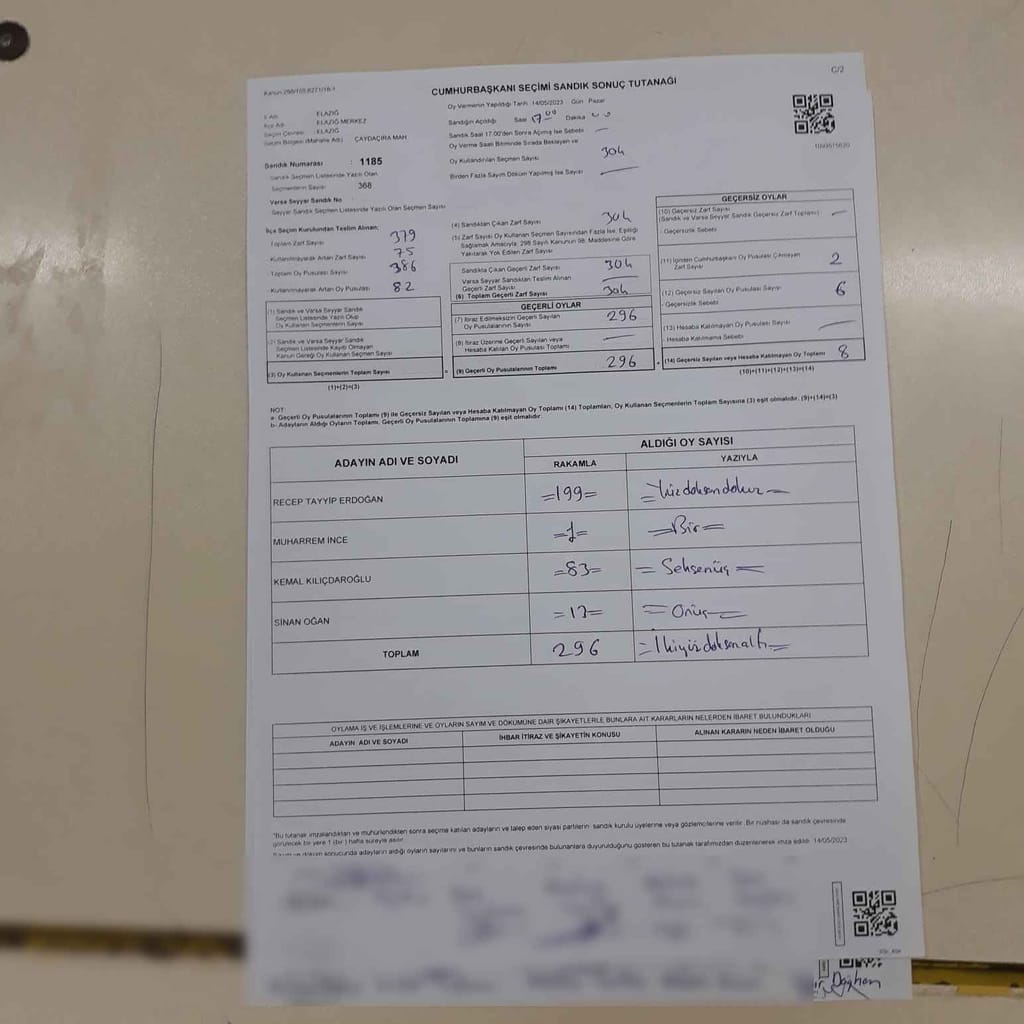 C/2
Kanun 298/105 6271/18-1
CUMHURBAŞKANI SEÇİMİ SANDIK SONUÇ TUTANAĞI
Oy Vermenin Yapıldığı Tarih 14/05/2023 Gün Pazar
İl Adı : ELAZIĞ
İlçe Adı : ELAZIĞ MERKEZ
Seçim Çevresi : ELAZIĞ
Seçim Bölgesi (Mahalle Adı) ÇAYDAÇIRA MAH
Sandığın Açıldığı Saat 17.00 Dakika 00
Sandık Saat 17.00'den Sonra Açılmış İse Sebebi —
Oy Verme Saati Bitiminde Sırada Bekleyen ve
Oy Kullandırılan Seçmen Sayısı 304
Birden Fazla Sayım Döküm Yapılmış İse Sayısı —
Sandık Numarası : 1185
Sandık Seçmen Listesinde Yazılı Olan
Seçmenlerin Sayısı 368
Varsa Seyyar Sandık No
Seyyar Sandık Seçmen Listesinde Yazılı Olan Seçmen Sayısı
İlçe Seçim Kurulundan Teslim Alınan;
Toplam Zarf Sayısı 379
Kullanılmayarak Artan Zarf Sayısı 75
Toplam Oy Pusulası Sayısı 386
Kullanılmayarak Artan Oy Pusulası 82
(1) Sandık ve Varsa Seyyar Sandık
Seçmen Listesinde Yazılı Olup
Oy Kullanan Seçmenlerin Sayısı
(2) Sandık ve Varsa Seyyar Sandık
Seçmen Listesinde Kayıtlı Olmayan
Kanun Gereği Oy Kullanan Seçmen Sayısı
(3) Oy Kullanan Seçmenlerin Toplam Sayısı
(1)+(2)=(3)
(4) Sandıktan Çıkan Zarf Sayısı 304
(5) Zarf Sayısı Oy Kullanan Seçmen Sayısından Fazla İse, Eşitliği
Sağlamak Amacıyla; 298 Sayılı Kanunun 98. Maddesine Göre
Yakılarak Yok Edilen Zarf Sayısı
Sandıkta Çıkan Geçerli Zarf Sayısı 304
Varsa Seyyar Sandıktan Teslim Alınan
Geçerli Zarf Sayısı —
(6) Toplam Geçerli Zarf Sayısı 304
GEÇERLİ OYLAR
(7) İtiraz Edilmeksizin Geçerli Sayılan
Oy Pusulalarının Sayısı 296
(8) İtiraz Üzerine Geçerli Sayılan veya
Hesaba Katılan Oy Pusulası Toplamı —
(9) Geçerli Oy Pusulalarının Toplamı 296
GEÇERSİZ OYLAR
(10) Geçersiz Zarf Sayısı
(Sandık ve Varsa Seyyar Sandık Geçersiz Zarf Toplamı) —
Geçersizlik Sebebi
(11) İçinden Cumhurbaşkanı Oy Pusulası Çıkmayan
Zarf Sayısı 2
(12) Geçersiz Sayılan Oy Pusulası Sayısı 6
Geçersizlik Sebebi
(13) Hesaba Katılmayan Oy Pusulası Sayısı —
Hesaba Katılmama Sebebi
(14) Geçersiz Sayılan veya Hesaba Katılmayan Oy Toplamı 8
(10)+(11)+(12)+(13)=(14)
NOT:
a- Geçerli Oy Pusulalarının Toplamı (9) ile Geçersiz Sayılan veya Hesaba Katılmayan Oy Toplamı (14) Toplamları, Oy Kullanan Seçmenlerin Toplam Sayısına (3) eşit olmalıdır. (9)+(14)=(3)
b- Adayların Aldığı Oyların Toplamı, Geçerli Oy Pusulalarının Toplamına (9) eşit olmalıdır.
ADAYIN ADI VE SOYADI ALDIĞI OY SAYISI
RAKAMLA YAZIYLA
RECEP TAYYİP ERDOĞAN =199= =Yüzdoksandokuz=
MUHARREM İNCE =1= =Bir=
KEMAL KILIÇDAROĞLU =83= =Seksenüç=
SİNAN OĞAN =13= =Onüç=
TOPLAM 296 =İkiyüzdoksanaltı=
OYLAMA İŞ VE İŞLEMLERİNE VE OYLARIN SAYIM VE DÖKÜMÜNE DAİR ŞİKAYETLERLE BUNLARA AİT KARARLARIN NELERDEN İBARET BULUNDUKLARI
ADAYIN ADI VE SOYADI İHBAR İTİRAZ VE ŞİKAYETİN KONUSU ALINAN KARARIN NEDEN İBARET OLDUĞU
"Bu tutanak imzalandıktan ve mühürlendikten sonra seçime katılan adayların ve talep eden siyasi partilerin sandık kurulu üyelerine veya gözlemcilerine verilir. Bir nüshası da sandık çevresinde
görülecek bir yere 1 (bir) hafta süreyle asılır.
Sayım ve döküm sonucunda adayların aldığı oyların sayılarını ve bunların sandık çevresinde bulunanlara duyurulduğunu gösteren bu tutanak tarafımızdan düzenlenerek imza edildi. 14/05/2023